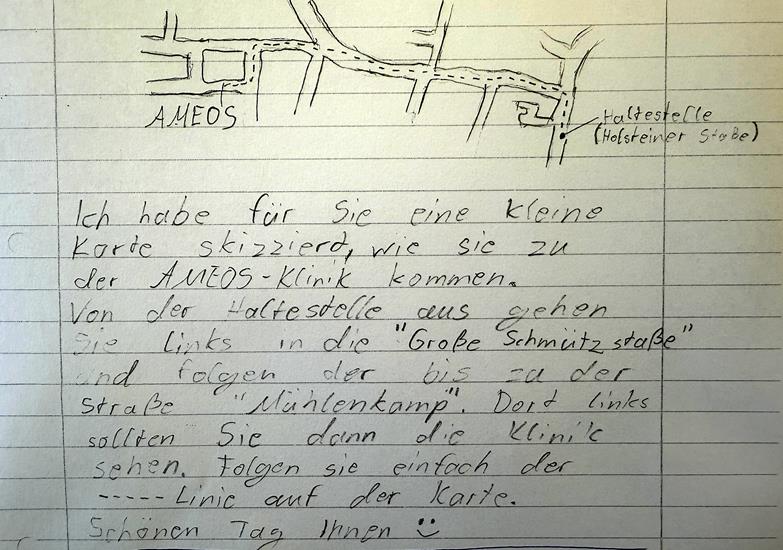 AMEOS
Haltestelle
(Holsteiner Staße)
Ich habe für Sie eine kleine
Karte skizzierd, wie sie zu
der AMEOS-Klinik kommen.
Von der Haltestelle aus gehen
Sie links in die "Große Schmützstaße"
und folgen der bis zu der
Straße "Mühlenkamp". Dort links
sollten Sie dann die Klinik
sehen. Folgen sie einfach der
----- Linie auf der Karte.
Schönen Tag Ihnen :)